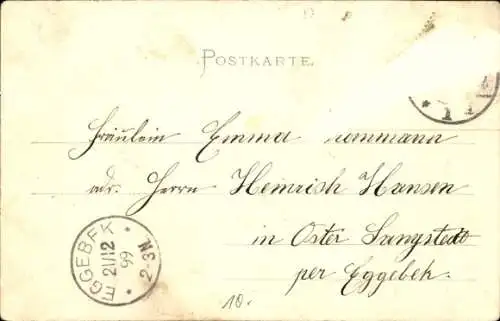 POSTKARTE.
Fräulein Emma
adr. Herrn Heinrich Hansen
in Oster Langstedt
per Eggebek.
EGGEBEK
21/12
99
2-3N
10.